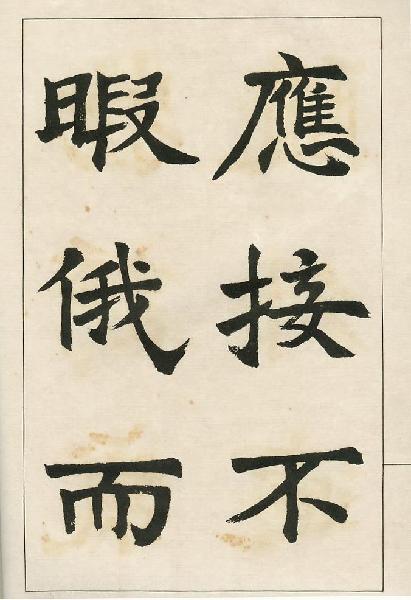 應接不
暇俄而